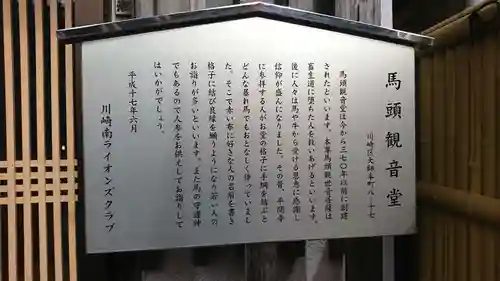 馬頭観音堂
川崎区大師本町八ー十七
馬頭観音堂は今から三七〇年以前に創建
されたといいます。本尊馬頭観世音菩薩は
畜生道に堕ちた人を救いあげるといいます。
後に人々は馬や牛から受ける恩恵に感謝し
信仰が盛んになりました。その昔、平間寺
に参拝する人がお堂の格子に手綱を結ぶと
どんな暴れ馬でもおとなしく待っていまし
た。そこで赤い布に好きな人の名前を書き
格子に結び良縁を願うようになり若い人の
お詣りが多いといいます。また馬の守護神
でもあるので人参をお供えしてお詣りして
はいかがでしょう。
平成十七年六月
川崎南ライオンズクラブ